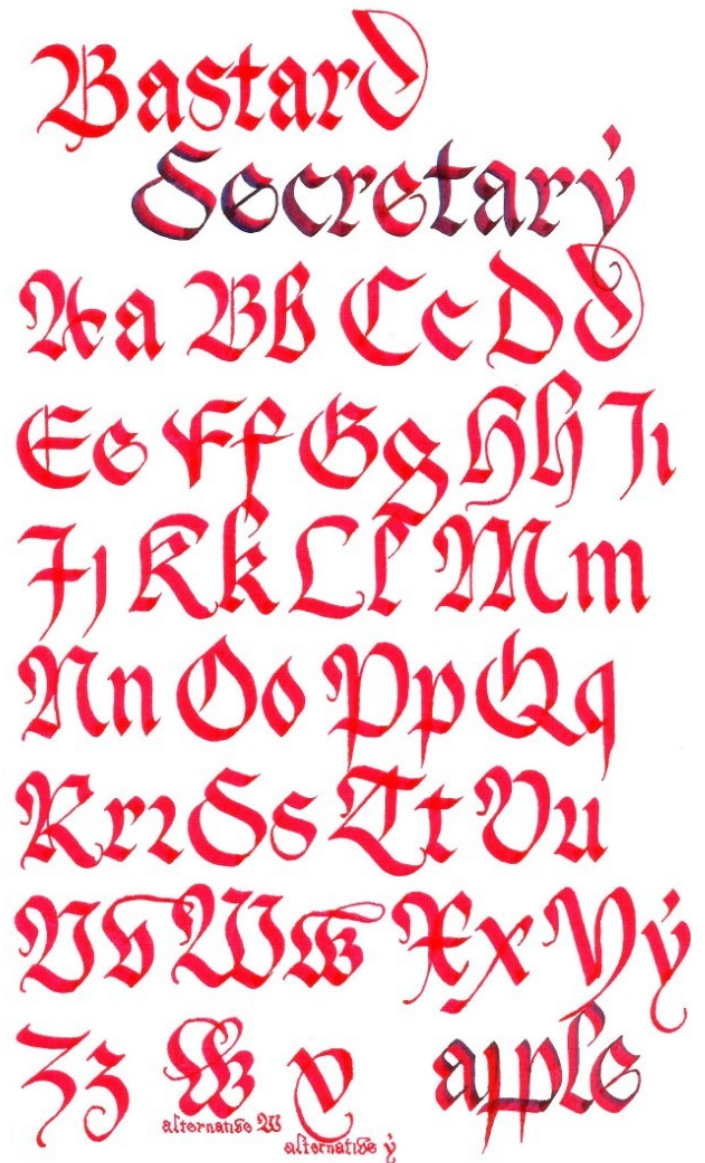 Bastard
Secretary
Aa Bb Cc Dd
Ee Ff Gg Hh Ii
Jj Kk Ll Mm
Nn Oo Pp Qq
Rrr Ss Tt Uu
Vv Ww Xx Yẏ
Zz W y apple
alternative W
alternative ẏ